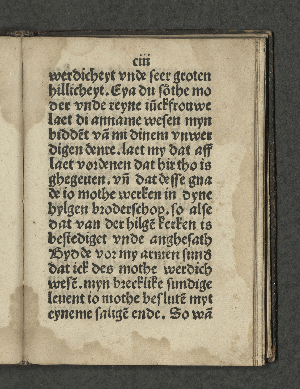 ciii
werdicheyt vnde seer groten
hillicheyt. Eya du sothe mo
der vnde reyne iūckfrouwe
laet di anname wesen myn
biddēt vā mi dinem vnwer
digen denre. laet my dat aff
laet vordenen dat hir tho is
ghegeuen. vñ dat desse gna
de io mothe werken in dyne
hylgen broderschop. so alse
dat van der hilgē kerken is
bestediget vnde anghesath
Bydde vor my armen sund
dat ick des mothe werdich
wesē. myn brecklike sundige
leuent io mothe beslutē myt
eyneme saligē ende. So wā